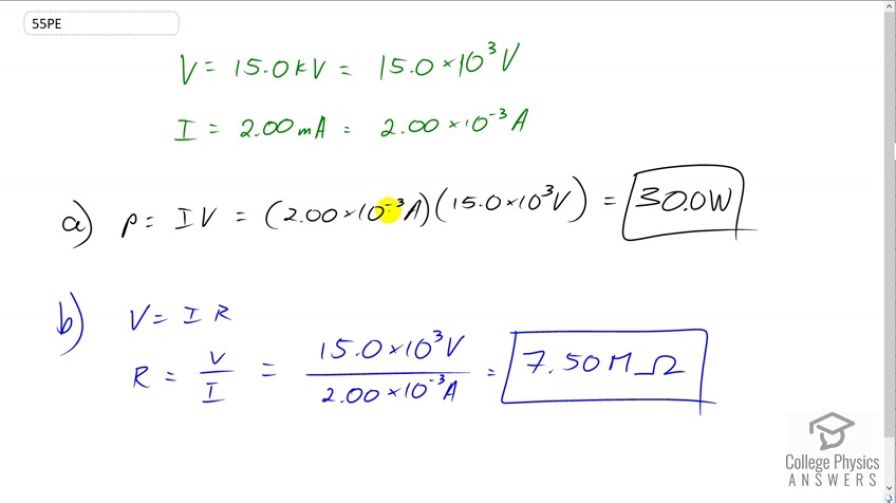 55PE
V = 15.0kV = 15.0 × 10³ V
I = 2.00 mA = 2.00 × 10⁻³ A
a) P = I V = (2.00 × 10⁻³ A)(15.0 × 10³ V) = 30.0W
b) V = I R
R = V/I = 15.0 × 10³ V / 2.00 × 10⁻³ A = 7.50 M Ω
College Physics
ANSWERS